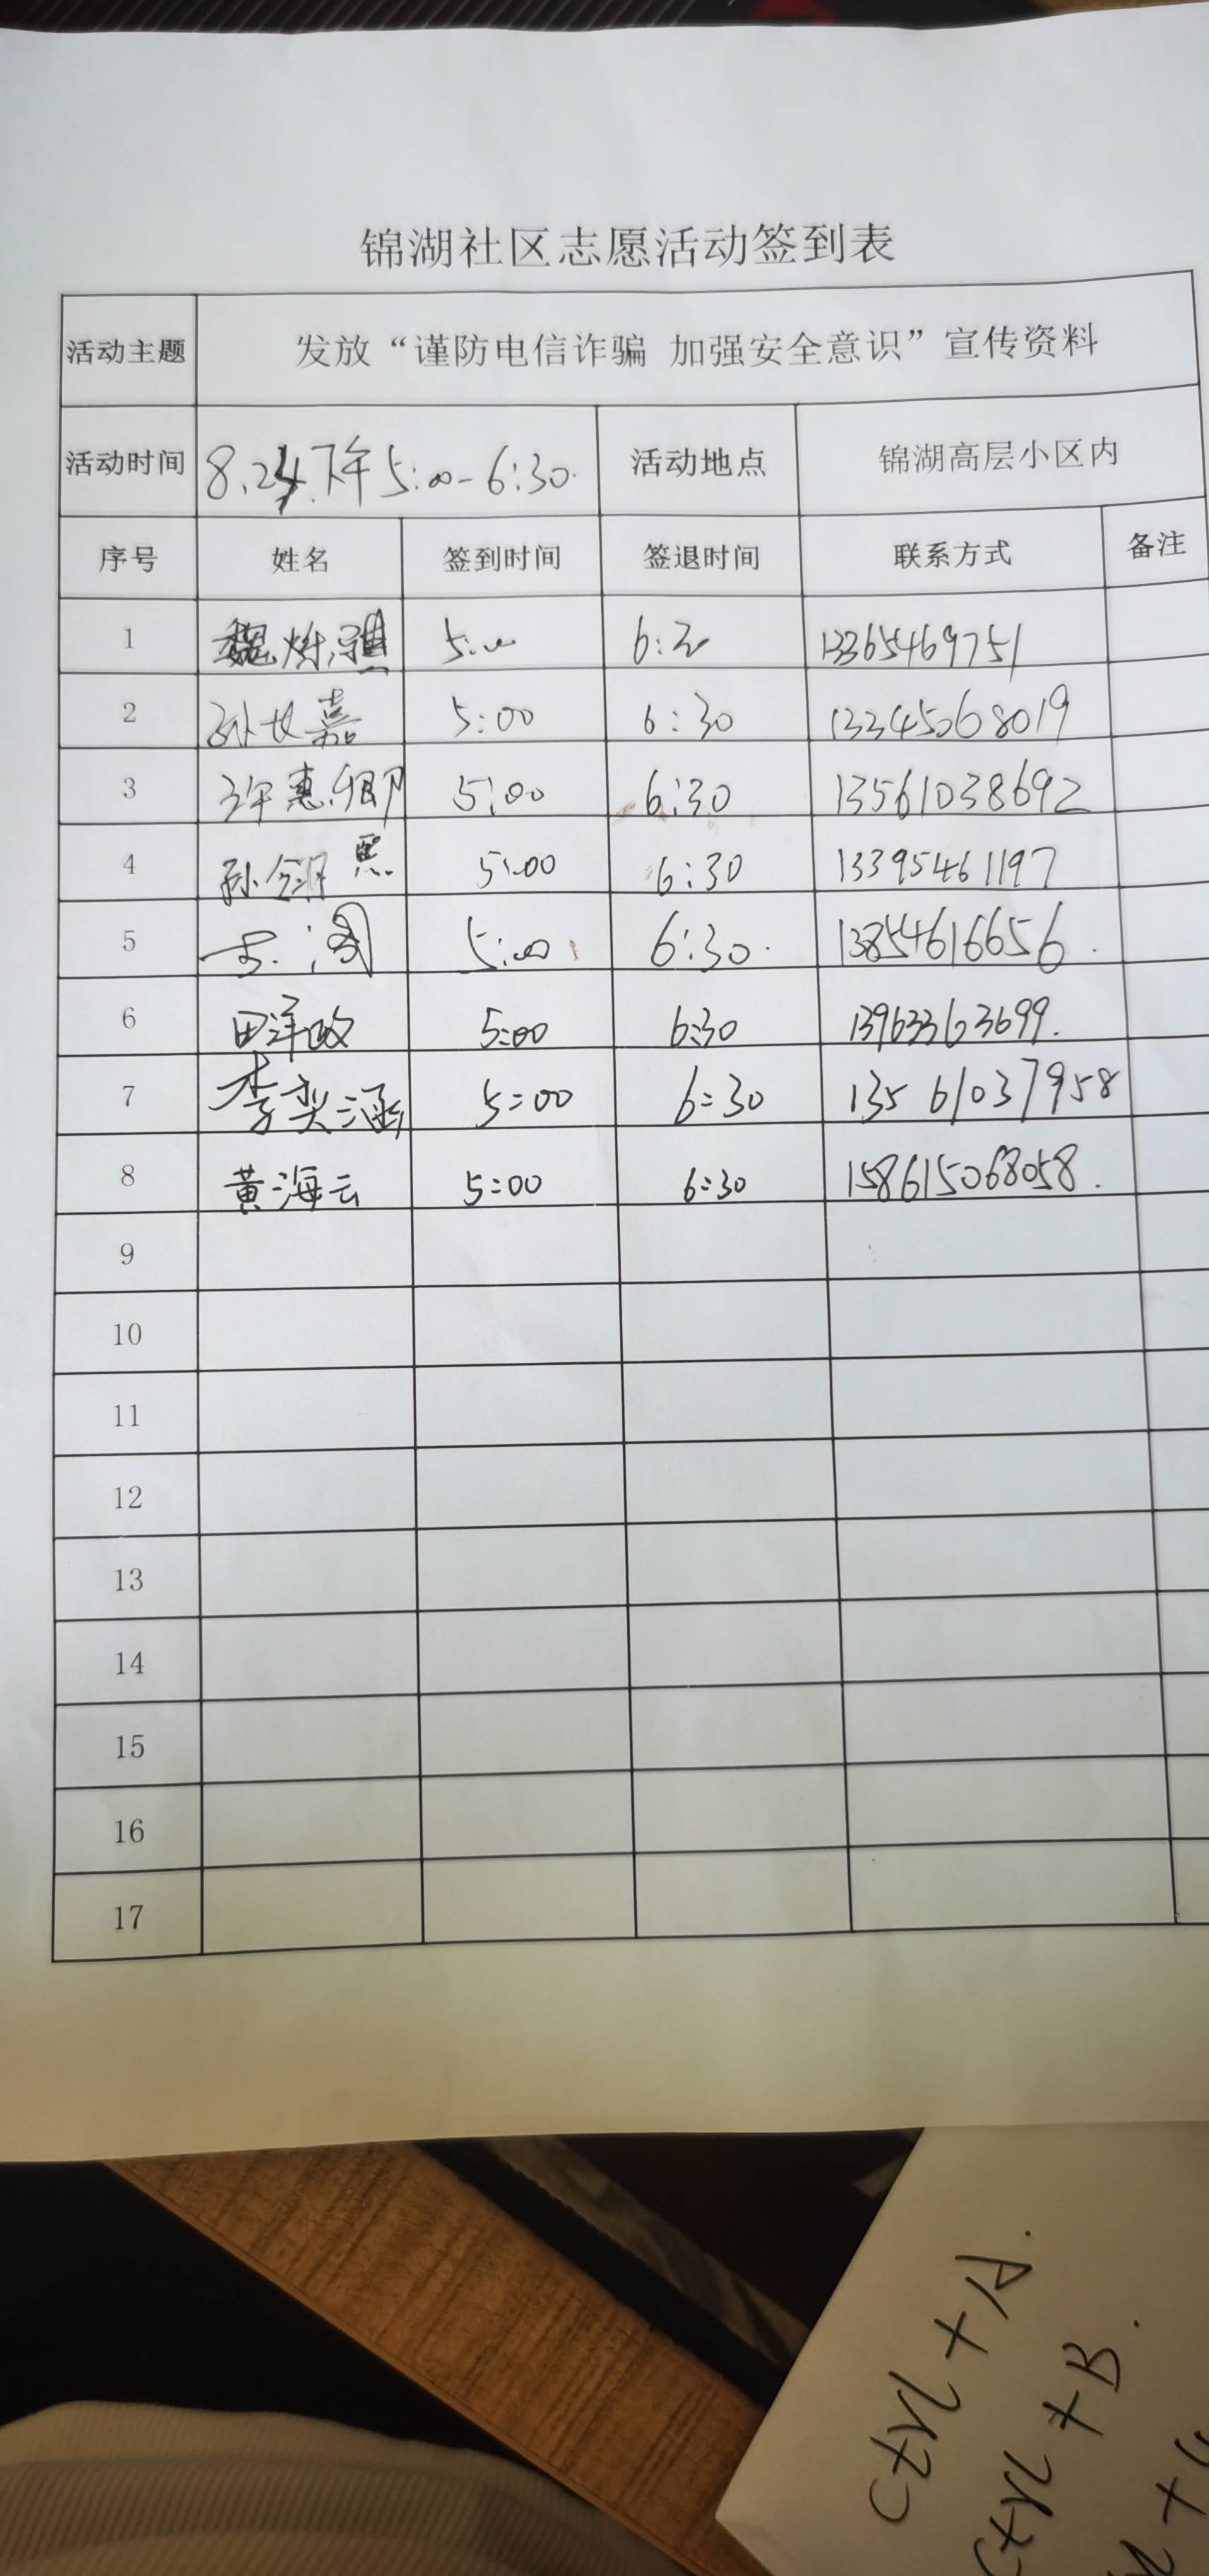 锦湖社区志愿活动签到表
活动主题 发放“谨防电信诈骗 加强安全意识”宣传资料
活动时间 8.24.下午5:00-6:30. 活动地点 锦湖高层小区内
序号 姓名 签到时间 签退时间 联系方式 备注
1 魏 5:00 6:30 13365469751
2 孙女嘉 5:00 6:30 13345068019
3 许惠卿 5:00 6:30 13561038692
4 孙 5:00 6:30 13395461197
5 5:00 6:30. 13854616656.
6 田洋政 5:00 6:30 13963363699.
7 李奕涵 5:00 6:30 13561037958
8 黄海云 5:00 6:30 158615068058.
9
10
11
12
13
14
15
16
17
Ctrl + A.
Ctrl + B.